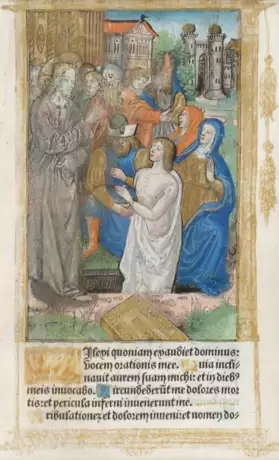 Dilexi quoniam exaudiet dominus:
vocem orationis mee. Quia incli-
nauit aurem suam michi: et in dieb9
meis inuocabo. Circundederūt me dolores mor
tis: et pericula inferni inuenerunt me.
Tribulationez et dolorem inueni: et nomen do-